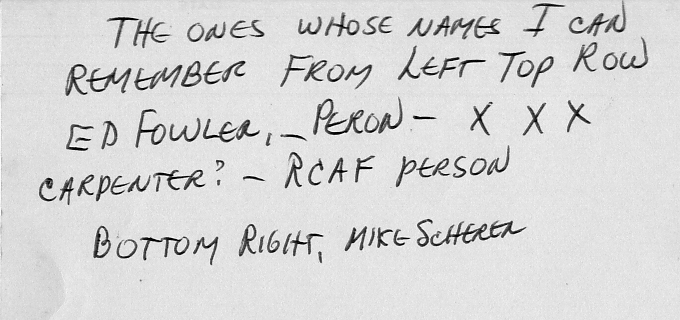 THE ONES WHOSE NAMES I CAN
REMEMBER FROM LEFT TOP ROW
ED FOWLER, _ PERON - X X X
CARPENTER? - RCAF PERSON
BOTTOM RIGHT, MIKE SCHERER